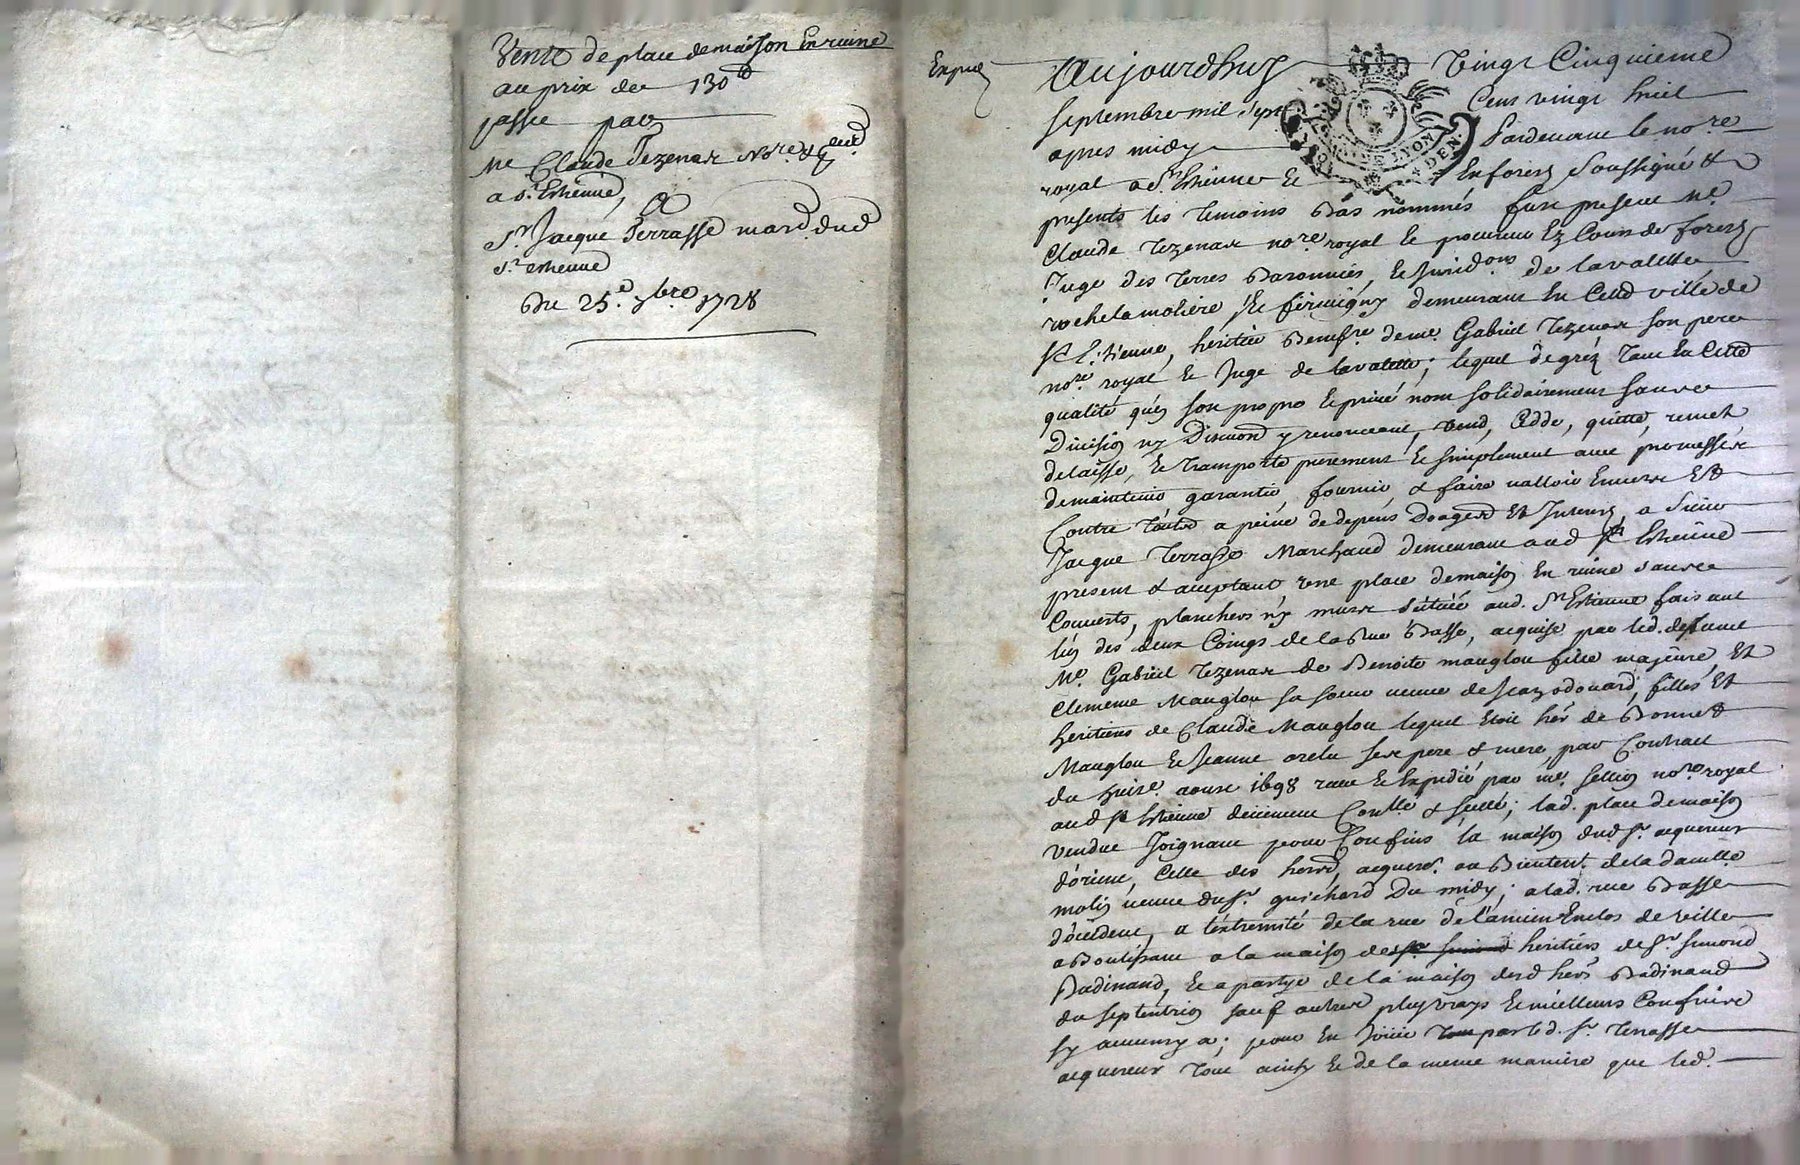 Vente de place demaison En ruine
au prix de 130ᵗᵗ
passée par
Me Claude Tezenas Nore &
a St Estienne,
A
Sr Jacque Terrasse mard dud
St estienne
Du 25e 7bre 1728
Aujourdhuy Vingt Cinquieme
septembre mil sept Cent vingt huit
apres midy Pardevant le nore
royal a St Estienne En forest Soussigné &
presents les temoins Bas nommés fust present Me
Claude Tezenas nore royal Et procureur Ez Cours de forest
Juge des terres Baronnies, Et Juridons de lavalette
rochelamoliere Et firmigny demeurant En Cetted ville de
St Etienne, heritier Benefre de me Gabriel Tezenas son pere
nore royal Et Juge de lavalette; lequel de gré tant En Cette
qualité qu'en son propre Et privé nom solidairement sans
Division ny Discution y renonceant, vend, Cedde, quitte, remet
delaisse, Et transporte purement Et simplement avec promesse
demaintenir garantir fournir & faire valloir Envers Et
Contre toutes a peine de depens Domages Et Interets, a Sieur
Jacque Terrasse Marchand demeurant aud St Estienne
present & acceptant une place demaison En ruine sans
Couverts, planchers ny murs scituée aud. St Estienne faisant
l'un des deux Coings de la Rue Basse, acquise par led. defunt
Me Gabriel Tezenas de Benoite mauglou fille majeure, Et
Clemence Mauglou sa soeur veuve de Jean odouard, filles Et
heritieres de Claude Mauglou lequel Etoit her de Bonnet
Mauglou Et Jeanne orelu ses pere & mere, par Contract
du huite. aoust 1698 receu Et Expedié par me nore royal
aud St Estienne deuement Conllé & scellé; lad. place demaison
vendue Joignant pour Confins la maison dud Sr. acquereur
d'orient, Celle des acquereur de la dam.lle
molin veuve du Sr. guichard Du midy; a lad. rue Basse
d'occident, a l'extremité de la rue de l'ancien Enclos de ville
aBoutissant a la maison des heritiers de Sr. Simond
Badinand, Et a partye de la maison desd hers Badinand
du septentrion sauf autres plus vrays Et meilleurs Confins
sy aucuns y a; pour En Jouir par led. Sr. Terrasse
acquereur tout ainsy Et de la meme maniere que led.